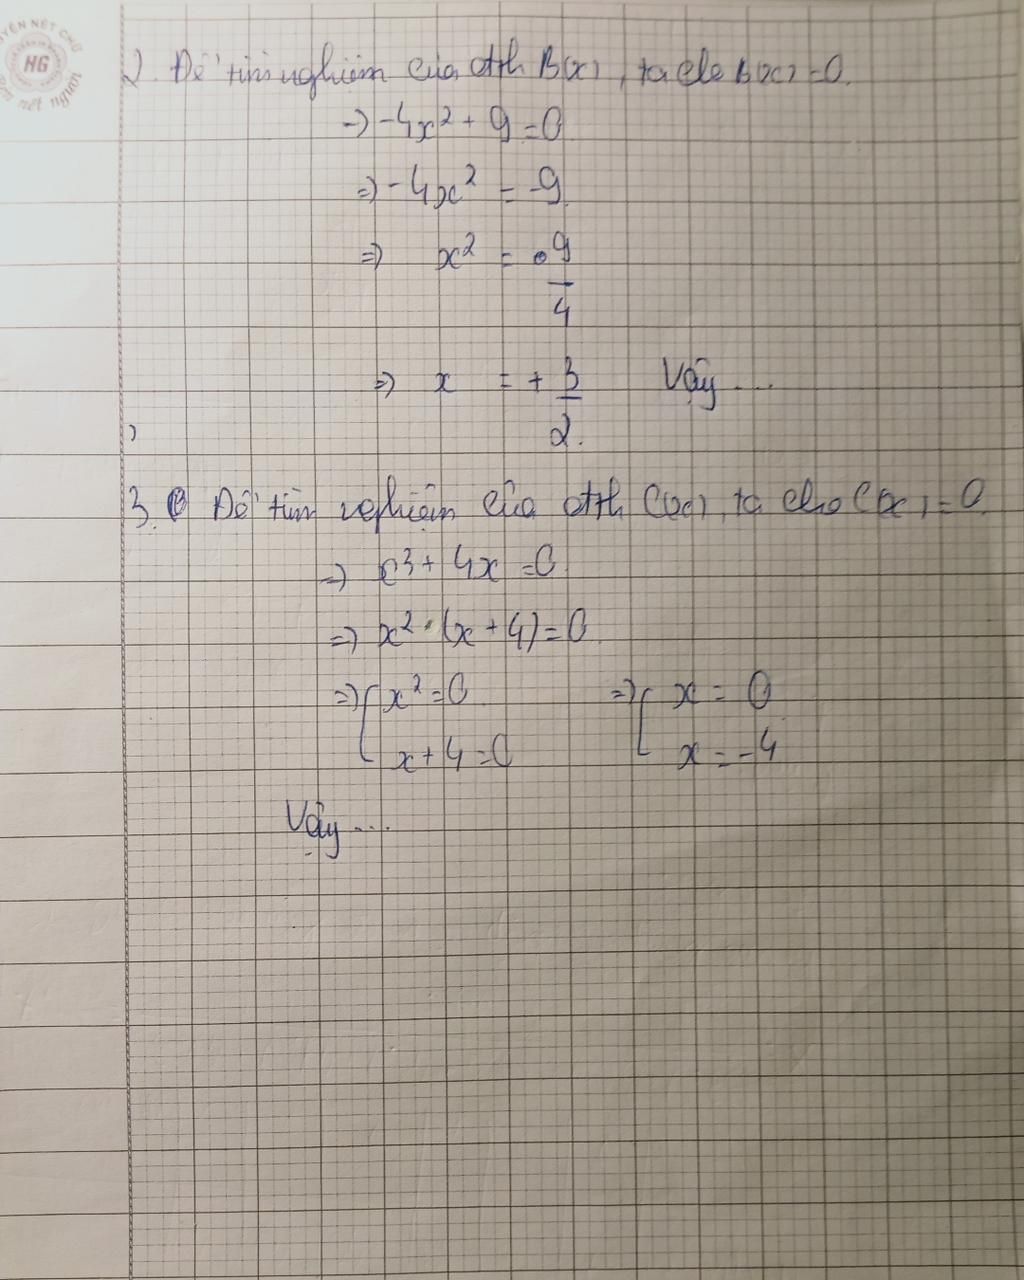 2. Để tìm nghiệm của đth B(x), ta cho B(x) = 0.
=) -4x² + 9 = 0
=) -4x² = -9
=) x² = 9/4
=) x = + 3/2. Vậy ...
3. Để tìm nghiệm của đth C(x), ta cho C(x) = 0
=) x³ + 4x = 0
=) x² . (x + 4) = 0
=) [ x² = 0 =) [ x = 0
x + 4 = 0 x = -4
Vậy ...
HG